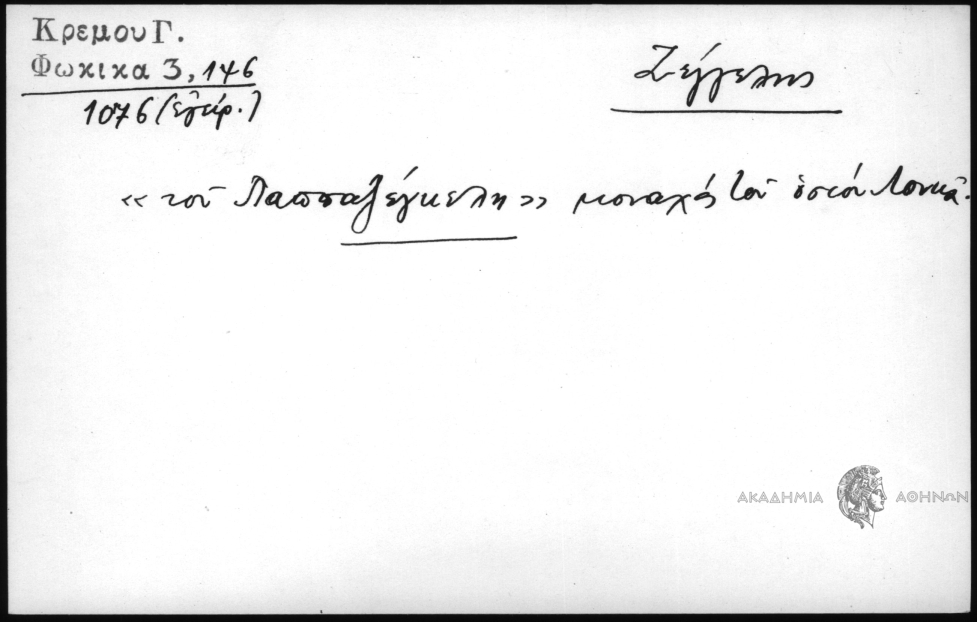 Κρεμου Γ.
Φωκικα 3, 146
1076 (ἐγκύρ.)
Ζέγγελης
«τοῦ Παππαζέγκελη» μοναχὸς τοῦ ὁσίου Λουκᾶ.
ΑΚΑΔΗΜΙΑ ΑΘΗΝΩΝ